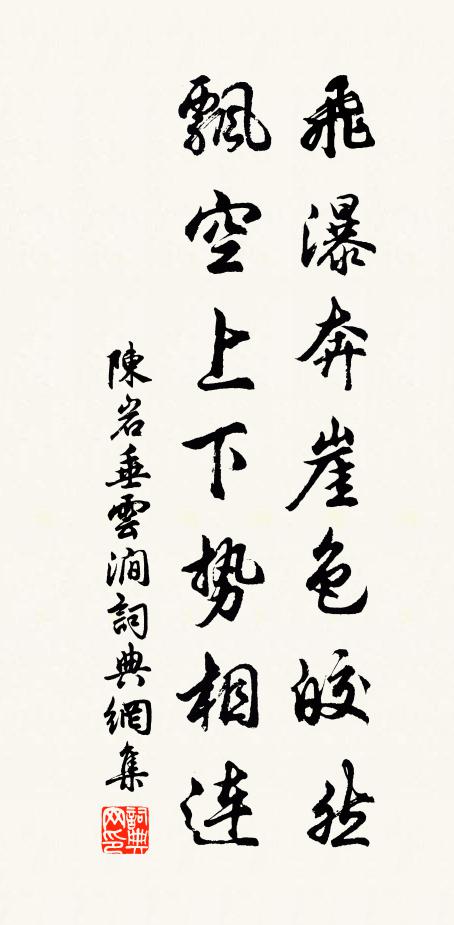 飛瀑奔崖色皎然
飄空上下勢相連
陳岩垂雲澗詞典網集
詞典网印